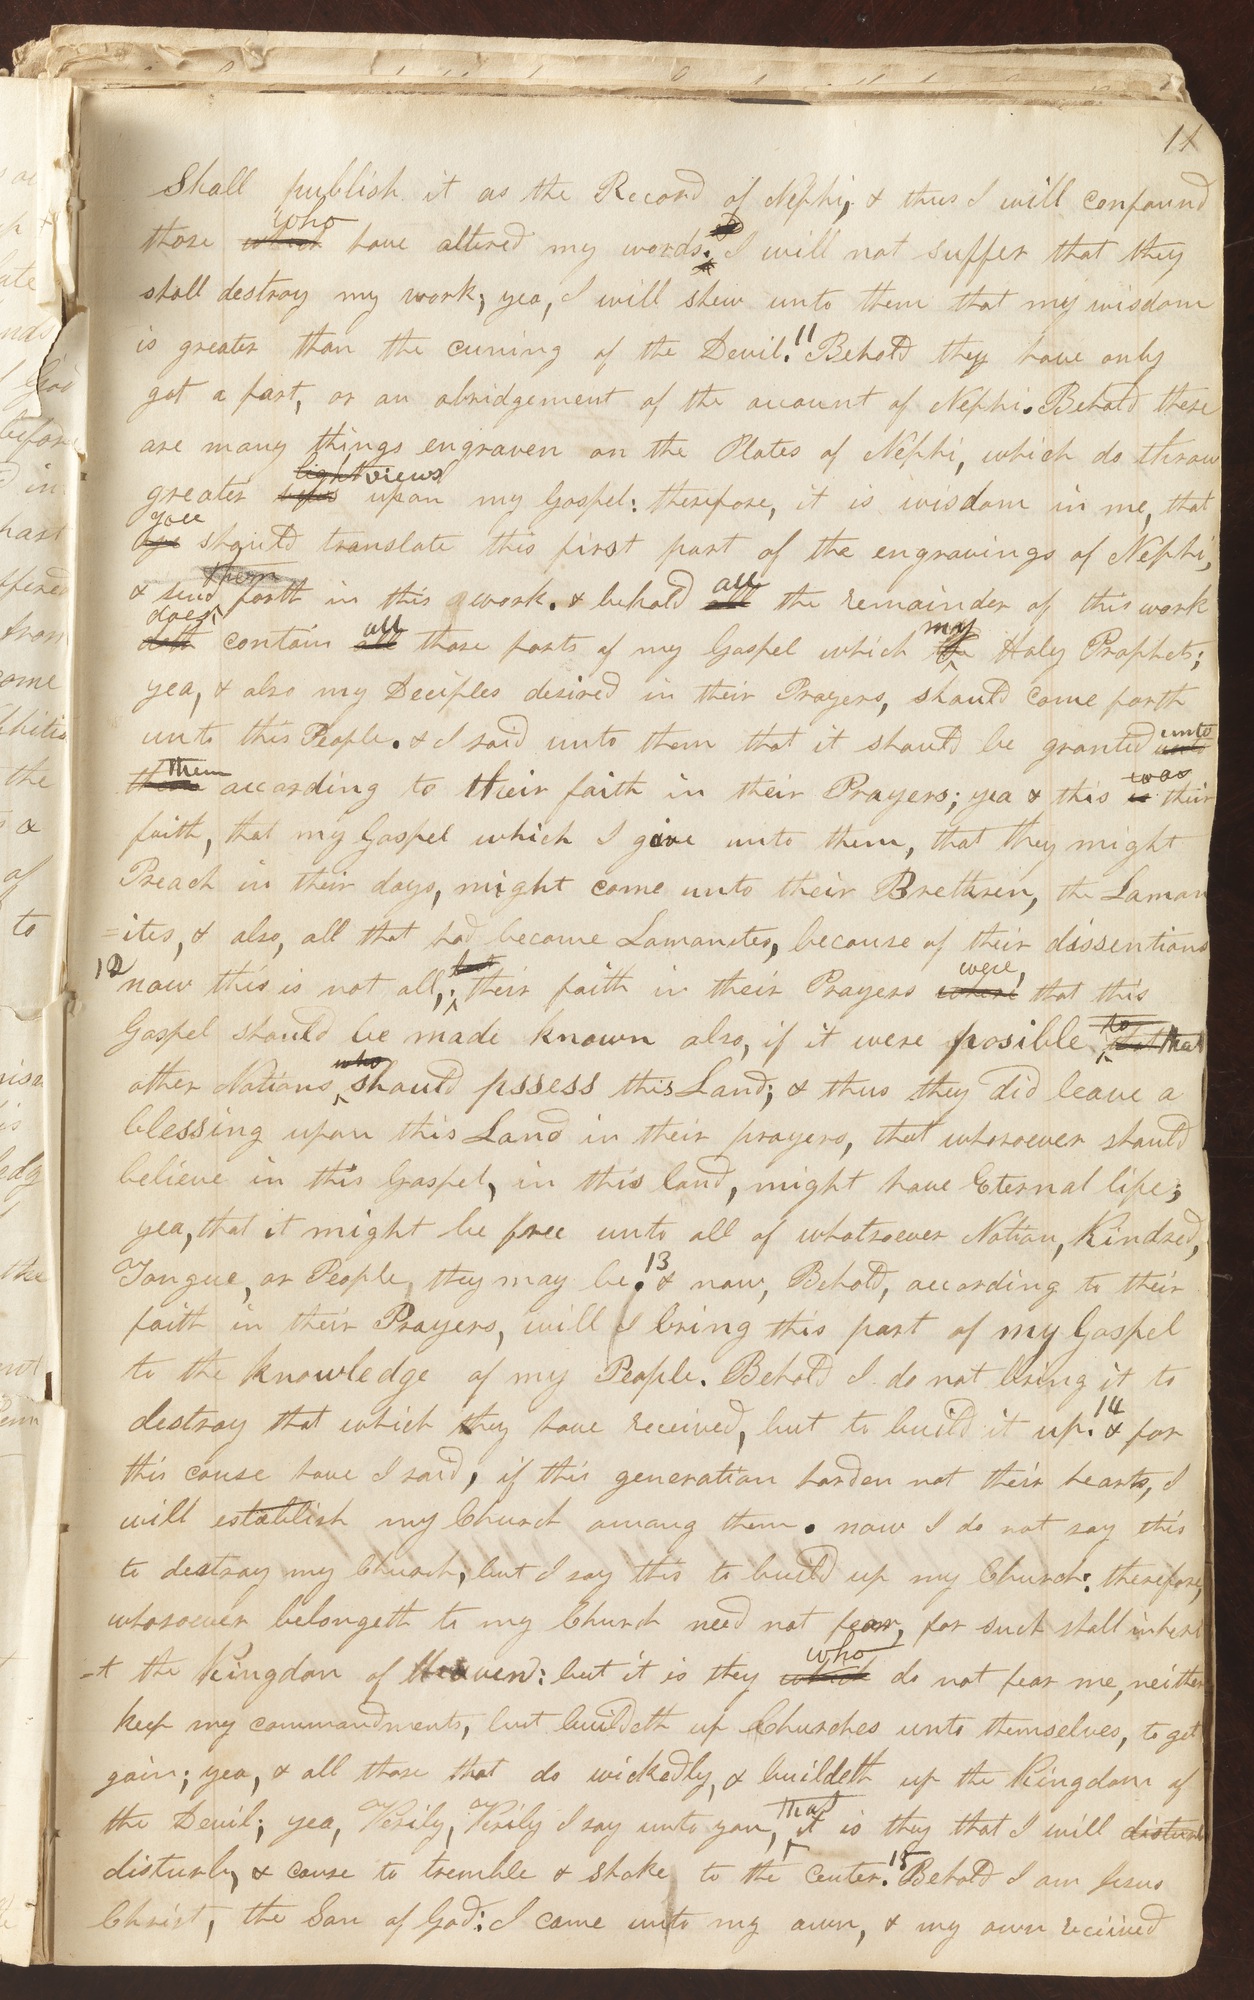 11
Shall publish it as the Record of Nephi, & thus I will confound
who
those which have altered my words. I will not suffer that they
shall destroy my work; yea, I will shew unto them that my wisdom
is greater than the cuning of the Devil. 11 Behold they have only
got a part, or an abridgement of the account of Nephi. Behold there
are many things engraven on the Plates of Nephi, which do throw
light views
greater upon my Gospel: therefore, it is wisdom in me, that
you
should translate this first part of the engravings of Nephi,
them
& send forth in this work. & behold all the remainder of this work
does all my
doth contain all those parts of my Gospel which the Holy Prophets;
yea, & also my Deciples desired in their Prayers, should come forth
unto this People. & I said unto them that it should be granted unto
them was
them according to their faith in their Prayers; yea & this is their
faith, that my Gospel which I give unto them, that they might
Preach in their days, might come unto their Brethren, the Laman
=ites, & also, all that had become Lamanites, because of their dissentions
but were,
12 now this is not all, their faith in their Prayers that this
Gospel should be made known also, if it were posible to that
who
other Nations should pssess this Land; & thus they did leave a
blessing upon this Land in their prayers, that whosoever should
believe in this Gospel, in this land, might have Eternal life;
yea, that it might be free unto all of whatsoever Nation, Kindred,
Tongue, or People, they may be. 13 & now, Behold, according to their
faith in their Prayers, will I bring this part of my Gospel
to the knowledge of my People. Behold I do not bring it to
destroy that which they have received, but to build it up. 14 & for
this cause have I said, if this generation harden not their hearts, I
will establish my Church among them. now I do not say this
to destroy my Church, but I say this to build up my Church: therefore,
whosoever belongeth to my Church need not fear, for such shall inheri
who
-t the Kingdom of Heaven: but it is they which do not fear me, neither
keep my commandments, but buildeth up Churches unto themselves, to get
gain; yea, & all those that do wickedly, & buildeth up the Kingdom of
that
the Devil; yea, Verily, Verily I say unto you, it is they that I will disturb
disturb, & cause to tremble & shake to the center. 15 Behold I am Jesus
Christ, the Son of God: I came unto my own, & my own received